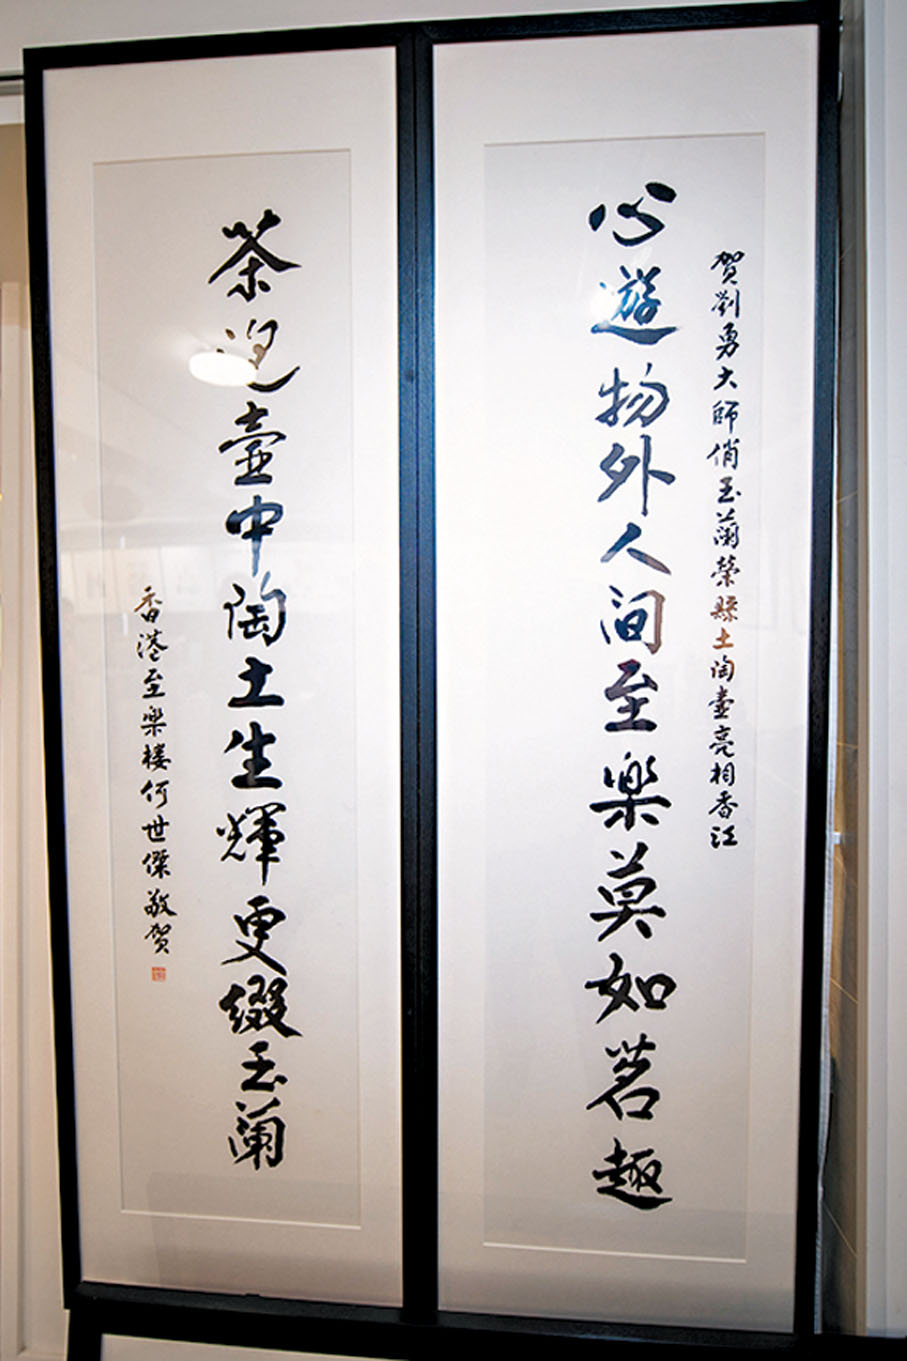 贺劉勇大師俏玉蘭榮縣土陶壺亮相香江
心遊物外人间至樂莫如茗趣
茶壺中陶土生輝更缀玉蘭
香港至樂楼何世傑敬贺